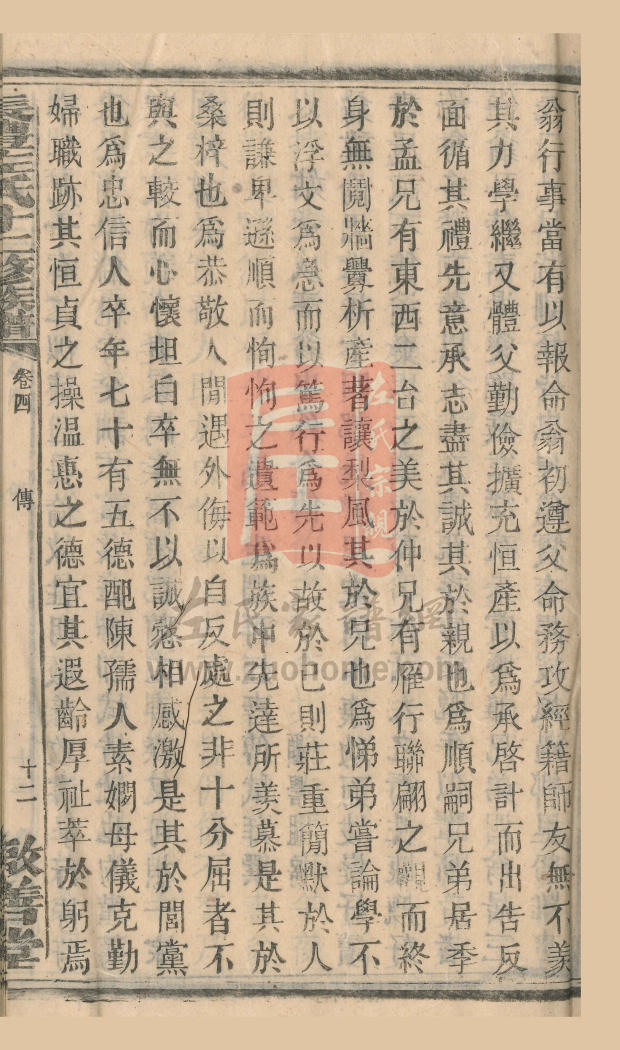 翁行事當有以報命翁初遵父命務攻經籍師友無不羨
其力學繼又體父勤儉擴充恒產以爲承啓計而出告反
面循其禮先意承志盡其誠其於親也爲順嗣兄弟居季
於孟兄有東西二台之美於仲兄有雁行聯翩之觀而終
身無鬩牆釁析產著讓梨風其於兄也爲悌弟嘗論學不
以浮文爲急而以篤行爲先以故於已則莊重簡默於人
則謙卑遜順而恂恂之遺範爲族中先達所羨慕是其於
桑梓也爲恭敬人間遇外侮以自反處之非十分屈者不
與之較而心懷坦白卒無不以誠慤相感激是其於閭黨
也爲忠信人卒年七十有五德配陳孺人素嫺母儀克勤
婦職跡其恒貞之操溫惠之德宜其遐齡厚祉萃於躬焉
長豐左氏十二修族譜 卷四 傳 十二 敦善堂
左氏宗親
左氏家譜網
www.zuohome.com